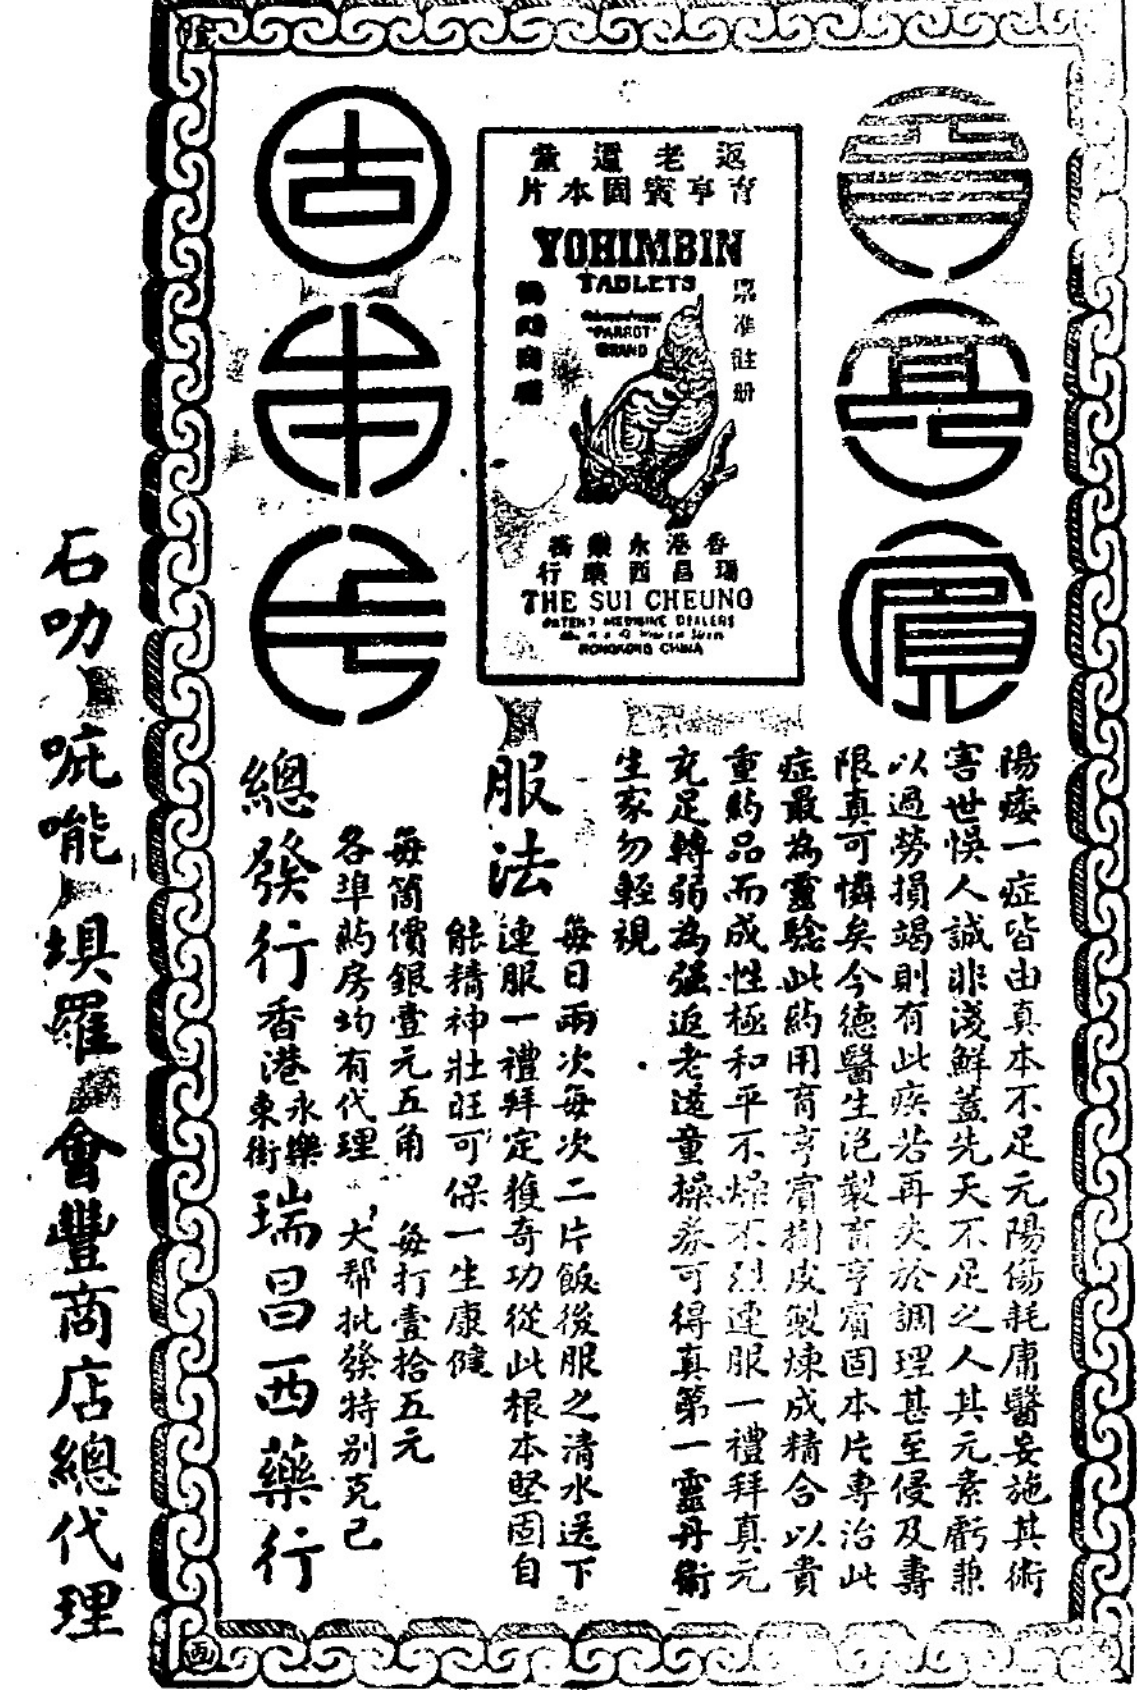 育亨賓
固本片
返老還童
育亨賓固本片
YOHIMBIN
TABLETS
"PARROT"
BRAND
註册
香港永樂街
瑞昌西藥行
THE SUI CHEUNG
PATENT MEDICINE DEALERS
HONGKONG CHINA
陽痿一症皆由真本不足元陽傷耗庸醫妄施其術
害世悞人誠非淺鮮蓋先天不足之人其元素虧兼
以過勞損竭則有此疾若再失於調理甚至侵及壽
限真可憐矣今德醫生泡製育亨賓固本片專治此
症最為靈驗此葯用育亨賓樹皮製煉成精合以貴
重葯品而成性極和平不燥不烈連服一禮拜真元
充足轉弱為强返老還童操券可得真第一靈丹衛
生家勿輕視
服法
每日兩次每次二片飯後服之清水送下
連服一禮拜定獲奇功從此根本堅固自
能精神壯旺可保一生康健
每箇價銀壹元五角 每打壹拾五元
各埠葯房均有代理 大帮批發特别克己
總發行香港永樂東街瑞昌西藥行
石叻 呲嚨 埧羅 會豐商店總代理